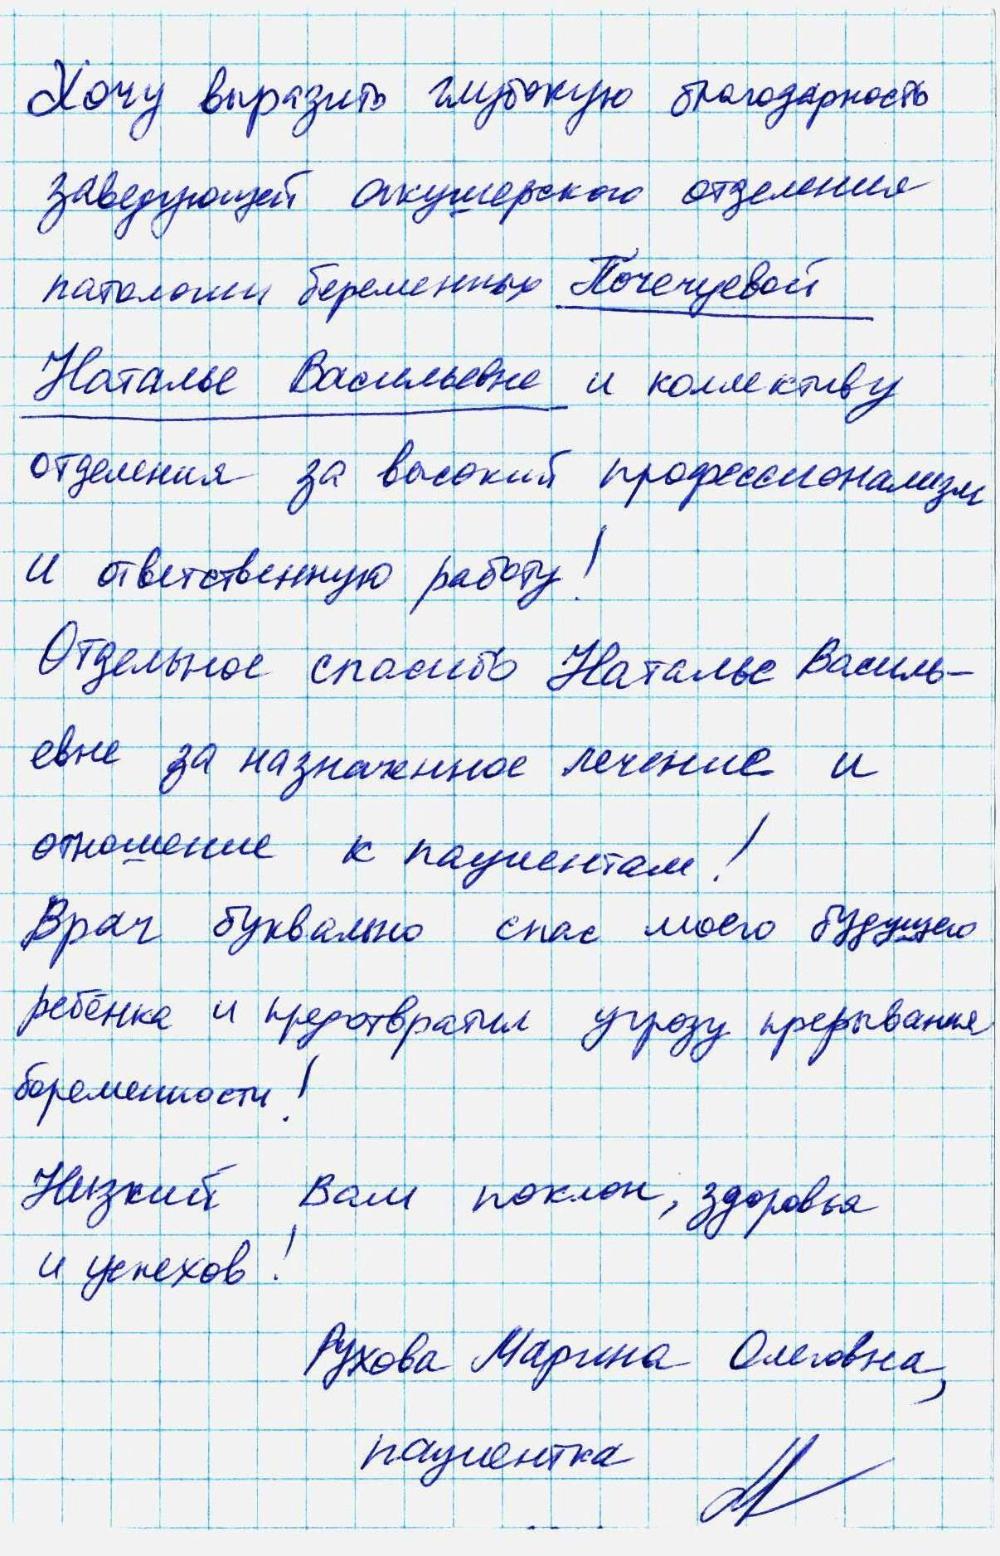 Хочу выразить глубокую благодарность
заведующей акушерского отделения
патологии беременных Почечуевой
Наталье Васильевне и коллективу
отделения за высокий профессионализм
и ответственную работу!
Отдельное спасибо Наталье Василь-
евне за назначенное лечение и
отношение к пациентам!
Врач буквально спас моего будущего
ребёнка и предотвратил угрозу прерывания
беременности!
Низкий Вам поклон, здоровья
и успехов!
Рухова Марина Олеговна,
пациентка